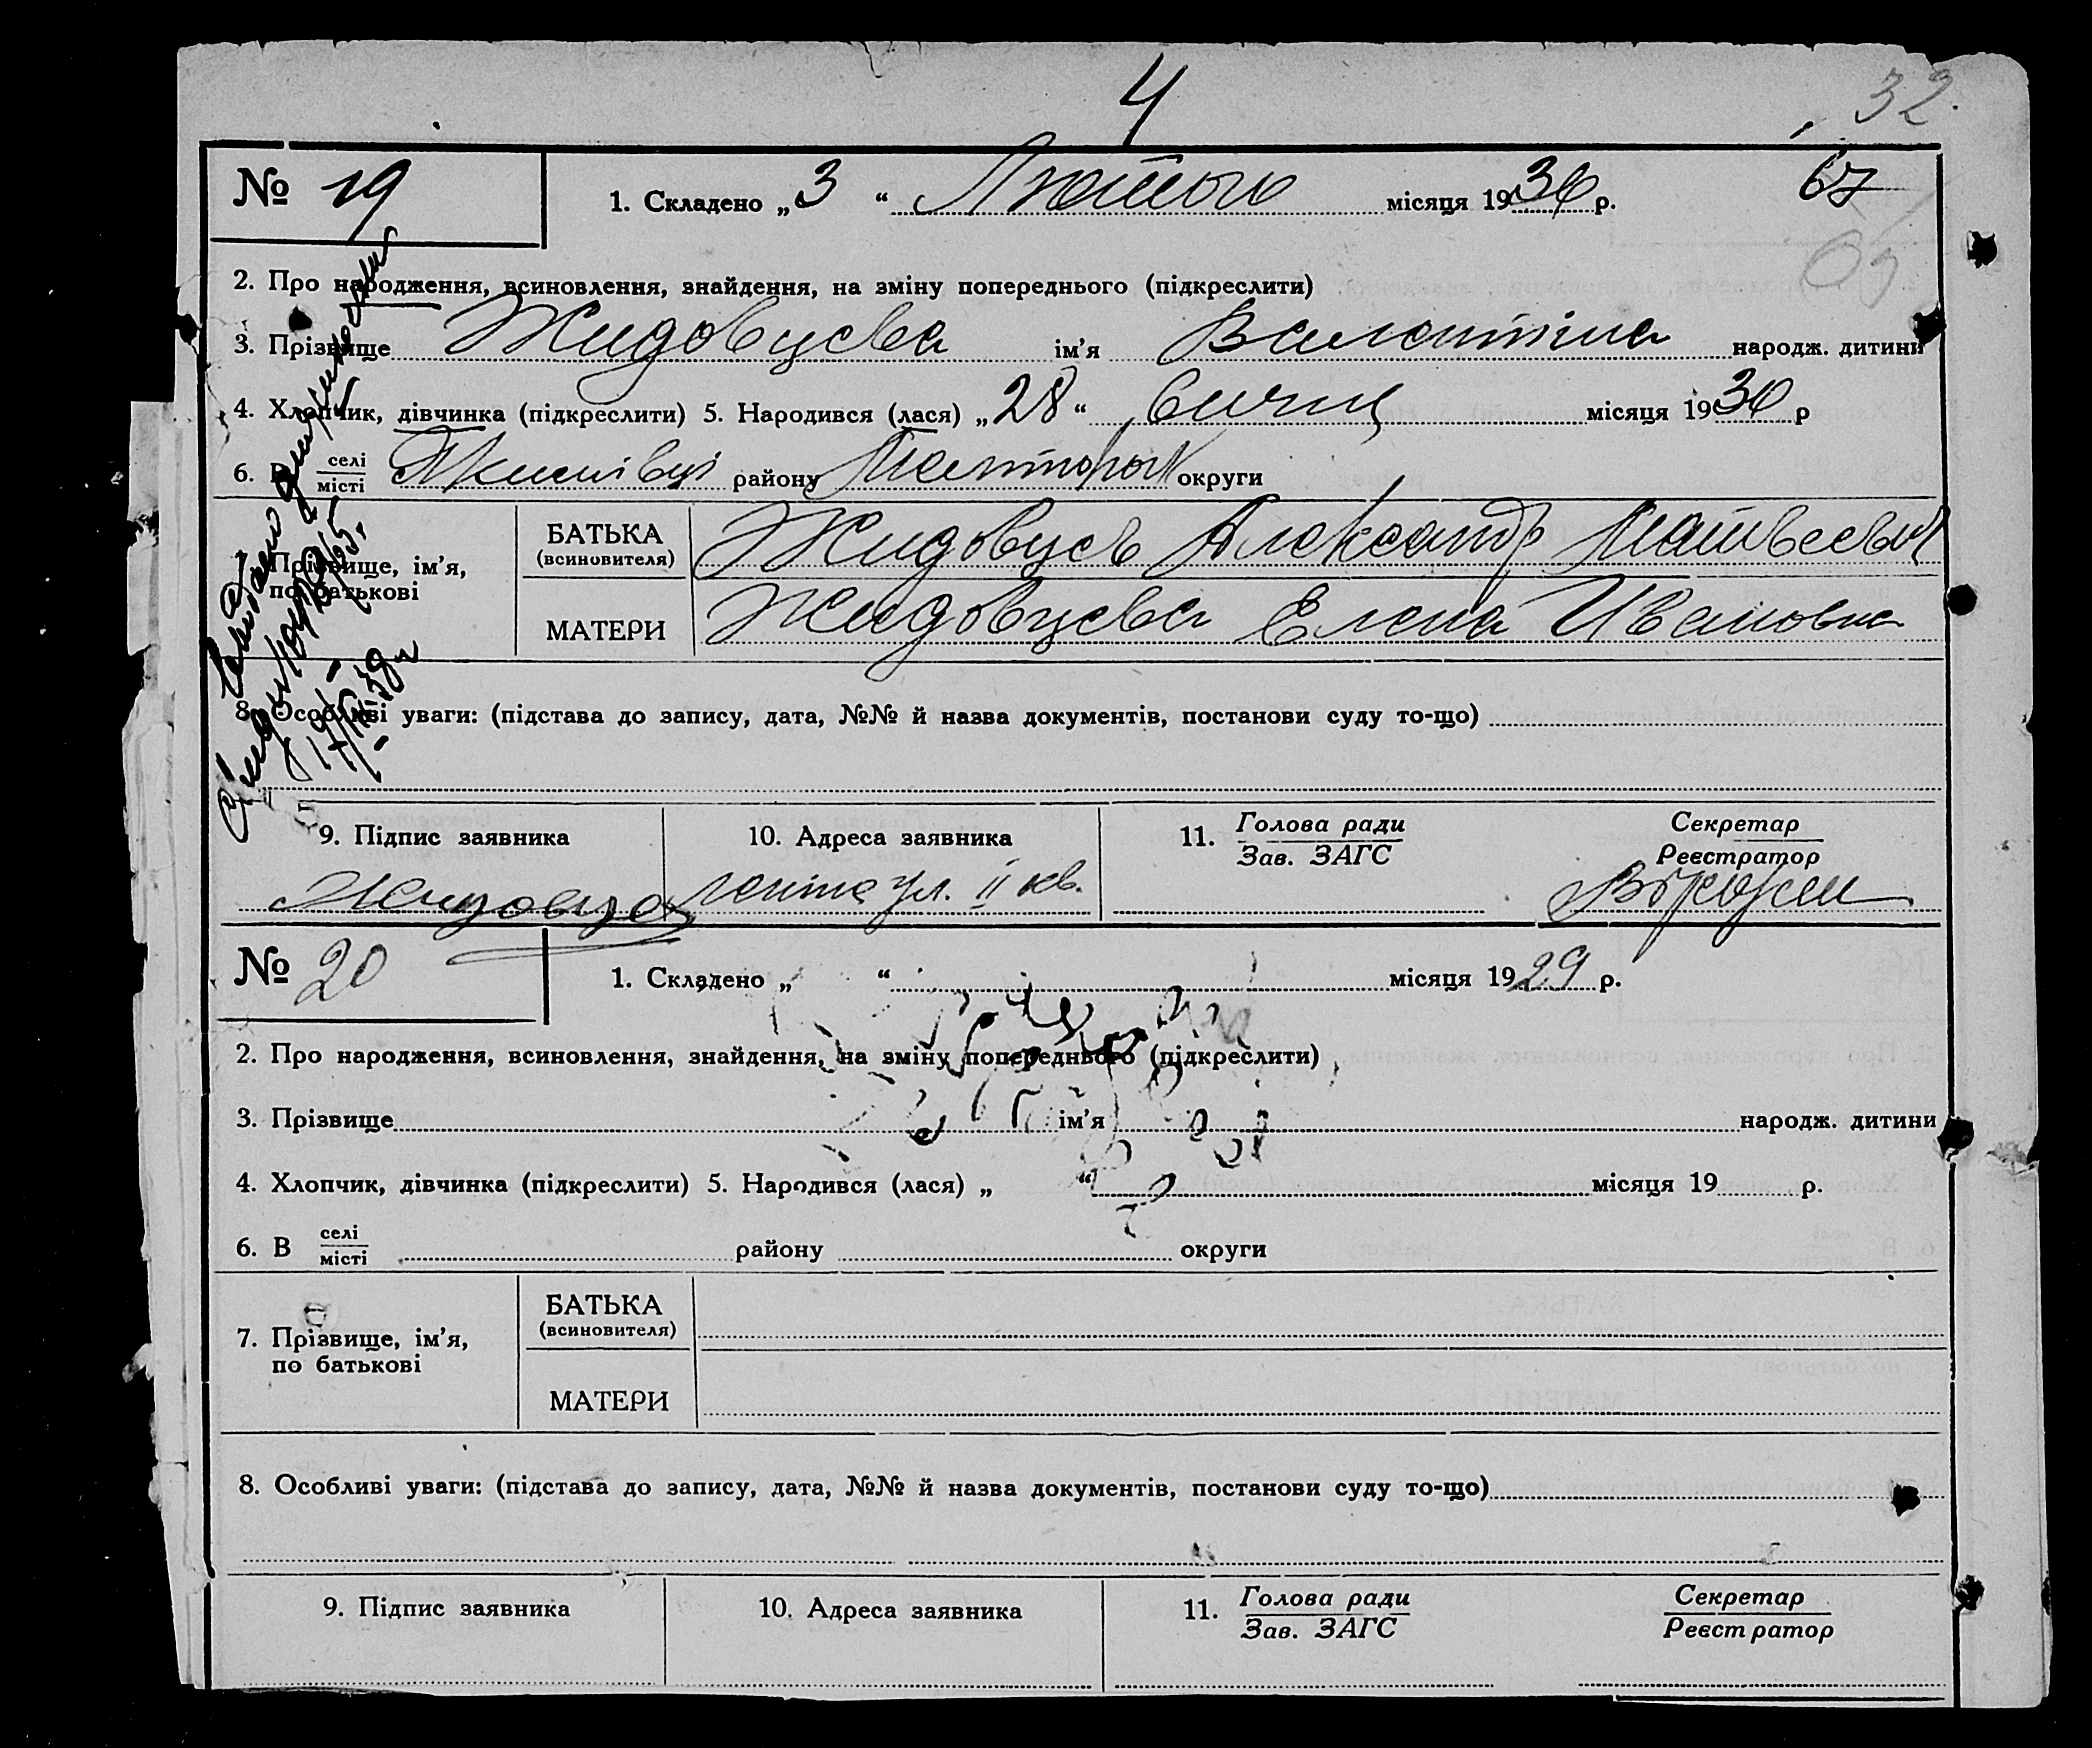 4
32
№ 19
1. Складено „3“ Лютого місяця 1930 р.
67
2. Про народження, всиновлення, знайдення, на зміну попереднього (підкреслити)
3. Прізвище Жидовцева ім’я Валентіна народж. дитини
4. Хлопчик, дівчинка (підкреслити) 5. Народився (лася) „28“ Січня місяця 1930 р
6. В селі місті району округи
Прізвище, ім’я, по батькові
БАТЬКА (всиновителя) Жидовцев Александр Матвеевич
МАТЕРИ Жидовцева Елена Ивановна
8. Особливі уваги: (підстава до запису, дата, №№ й назва документів, постанови суду то-що)
9. Підпис заявника
10. Адреса заявника
11. Голова ради Зав. ЗАГС
Секретар Реєстратор
ул. II кв.
№ 20
1. Складено „ “ місяця 1929 р.
2. Про народження, всиновлення, знайдення, на зміну попереднього (підкреслити)
3. Прізвище ім’я народж. дитини
4. Хлопчик, дівчинка (підкреслити) 5. Народився (лася) „ “ місяця 19 р.
6. В селі місті району округи
7. Прізвище, ім’я, по батькові
БАТЬКА (всиновителя)
МАТЕРИ
8. Особливі уваги: (підстава до запису, дата, №№ й назва документів, постанови суду то-що)
9. Підпис заявника
10. Адреса заявника
11. Голова ради Зав. ЗАГС
Секретар Реєстратор